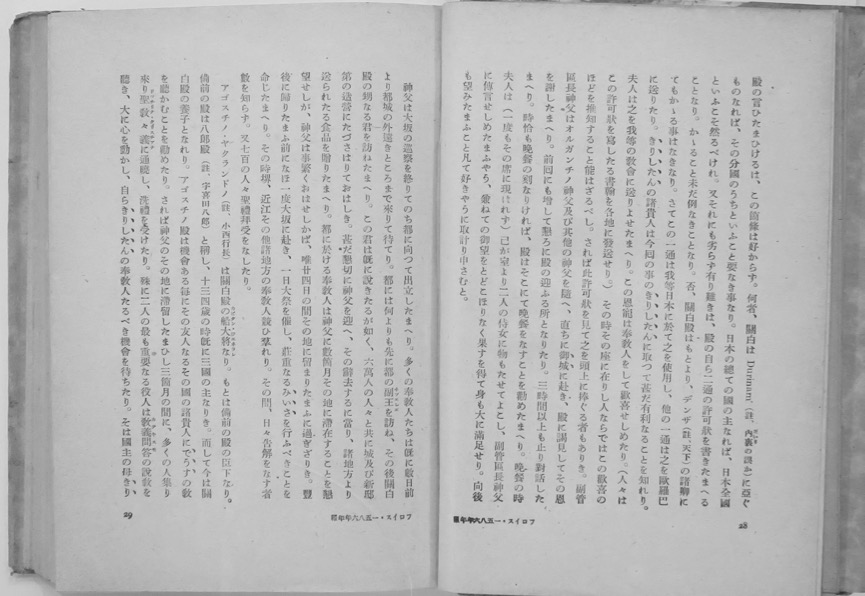 殿の言ひたまひけるは、この箇條は好からず。何者、關白は Durinani(註、内裏の謂か)に亞ぐ
ものなれば、その分國のうちといふこと要なき事なり。日本の總ての國の主なれば、日本全國
といふこそ然るべけれ。又それにも劣らず有り難きは、殿の自ら二通の許可狀を書きたまへる
ことなり。かゝること未だ例なきことなり。否、關白殿はもとより、デンザ(註、天下)の諸卿に
てもかゝる事はなきなり。さてこの一通は我等日本に於て之を使用し、他の一通は之を歐羅巴
に送りたり。きりしたんの諸貴人は今囘の事のきりしたんに取つて甚だ有利なることを知れり。
夫人は之を我等の敎會に送りよせたまへり。この恩寵は奉敎人をして歡喜せしめたり。(人々は
この許可狀を寫したる書翰を各地に發送せり。)その時その座に在りし人ならではこの歡喜の
ほどを推知すること能はざるべし。されば此許可狀を見て之を頭上に捧ぐる者もありき。副管
區長神父はオルガンチノ神父及び其他の神父を隨へ、直ちに御城に赴き、殿に謁見してその恩
を謝したまへり。前囘にも增して懇ろに殿の迎ふる所となりたり。三時間以上も止り對話した
まへり。時恰も晚餐の刻なりければ、殿はそこにて晚餐をなすことを勸めたまへり。晚餐の時
夫人は(一度もその席に現はれず)己が室より二人の侍女に物もたせてよこし、副管區長神父
に傳言せしめたまふやう、兼ねての御望をとどこほりなく果すを得て身も大に滿足せり。向後
も望みたまふこと凡て好きやうに取計り申さむと。
フロイス・一五八六年年報
28
神父は大坂の巡察を終りてのち都に向つて出立したまへり。多くの奉敎人たちは旣に數日前
より都城の外遠きところまで來りて待てり。都には何よりも先に都の副王を訪ね、その後關白
殿の甥なる君を訪ねたまへり。この君は旣に說きたるが如く、六萬人の人々と共に城及び新邸
第の造營にたづさはりておはしき。甚だ懇切に神父を迎へ、その辭去するに當り、諸地方より
送られたる食品を贈りたまへり。都に於ける奉敎人は神父に數箇月その地に滯在することを懇
望せしが、神父は事繁くおはせしかば、唯廿四日の間その地に留まりたまふに過ぎざりき。豐
後に歸りたまふ前になほ一度大坂に赴き、一日大祭を催し、莊重なるみいさを行ふべきことを
命じたまへり。その時堺、近江その他諸地方の奉敎人競ひ羣れり。その間、日々告解をなす者
數を知らず。又七百の人々聖禮拜受をなしたり。
アゴスチノ・ヤクランドノ(註、小西行長)は關白殿の船大將なり。もとは備前の殿の臣下なりき。
備前の殿は八郎殿(註、宇喜田八郎)と稱し、十三四歲の時旣に三國の主なりき。而して今は關
白殿の養子となれり。アゴスチノ殿は機會ある每にその友人なるその國の諸貴人にでうすの敎
を聽かむことを勸めたり。されば神父のその地に滯留したまひし三箇月の間に、多くの人集り
來り聖敎々義に通曉し、洗禮を受けたり。殊に二人の最も重要なる役人は敎義問答の說敎を
聽き、大に心を動かし、自らきりしたんの奉敎人たるべき機會を待ちたり。そは國主の母きり
フロイス・一五八六年年報
29